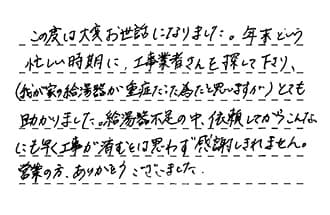 この度は大変お世話になりました。年末という
忙しい時期に、工事業者さんを探して下り、
(我が家の給湯器が重症だった為だと思いますが)とても
助かりました。給湯器不足の中、依頼してからこんな
にも早く工事が済むとは思わず感謝しきれません。
営業の方、ありがとうございました。